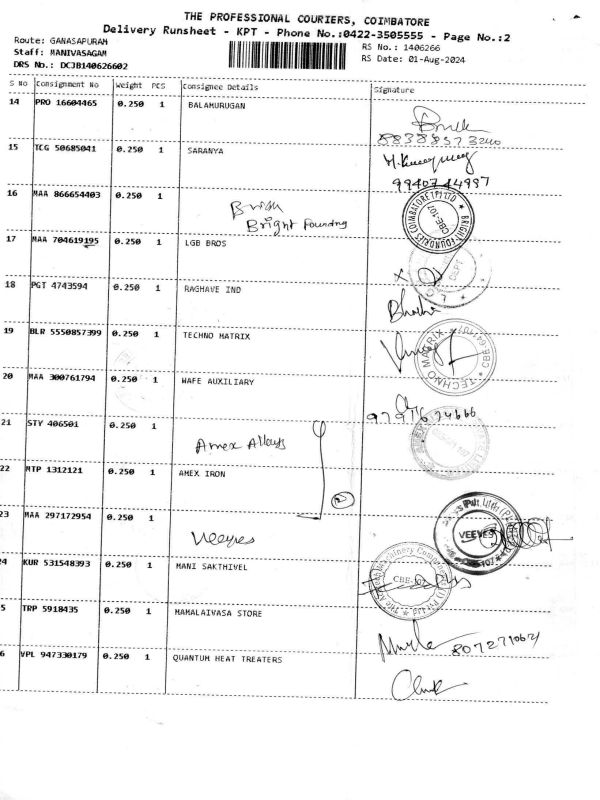 THE PROFESSIONAL COURIERS, COIMBATORE
Delivery Runsheet - KPT - Phone No.:0422-3505555 - Page No.:2
Route: GANASAPURAM
Staff: MANIVASAGAM
DRS No.: DCJB140626602
RS No.: 1406266
RS Date: 01-Aug-2024
S No Consignment No Weight PCS Consignee Details Signature
14 PRO 16604465 0.250 1 BALAMURUGAN
15 TCG 50685041 0.250 1 SARANYA
9940744997
16 MAA 866654403 0.250 1 Bright Foundry
BRIGHT FOUNDRIES COIMBATORE (P) LTD CBE-107
17 MAA 704619195 0.250 1 LGB BROS
18 PGT 4743594 0.250 1 RAGHAVE IND
19 BLR 5550857399 0.250 1 TECHNO MATRIX
TECHNO MATRIX
20 MAA 300761794 0.250 1 WAFE AUXILIARY
21 STY 406501 0.250 1 Amex Alloys
22 MTP 1312121 0.250 1 AMEX IRON
23 MAA 297172954 0.250 1 Veeyes
VEEYES
24 KUR 531548393 0.250 1 MANI SAKTHIVEL
5 TRP 5918435 0.250 1 MAMALAIVASA STORE
6 VPL 947330179 0.250 1 QUANTUM HEAT TREATERS